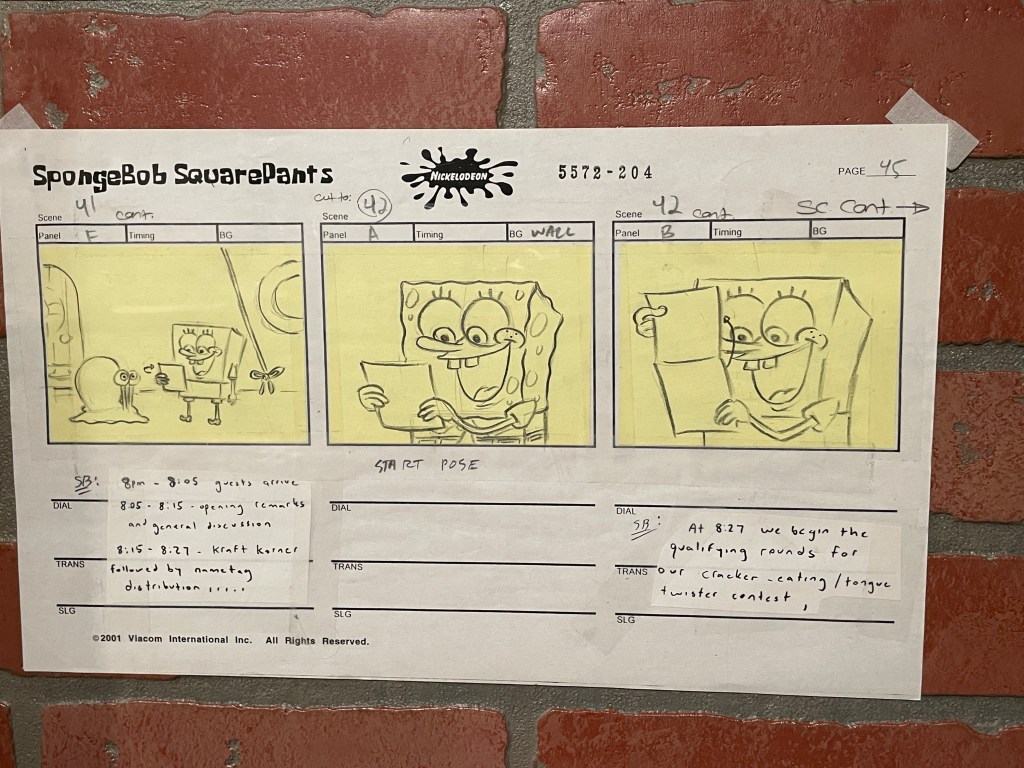 SpongeBob SquarePants
NICKELODEON
5572-204
PAGE 45
Scene 41 cont.
Panel F Timing BG
cut to:
Scene 42
Panel A Timing BG WALL
Scene 42 cont. SC Cont →
Panel B Timing BG
START POSE
SB: 8pm - 8:05 guests arrive
8:05 - 8:15 - opening remarks
and general discussion
8:15 - 8:27 - Kraft Korner
followed by nametag
distribution .....
DIAL
TRANS
SLG
DIAL
TRANS
SLG
DIAL
SB: At 8:27 we begin the
qualifying rounds for
TRANS
our cracker-eating/tongue
twister contest,
SLG
©2001 Viacom International Inc. All Rights Reserved.